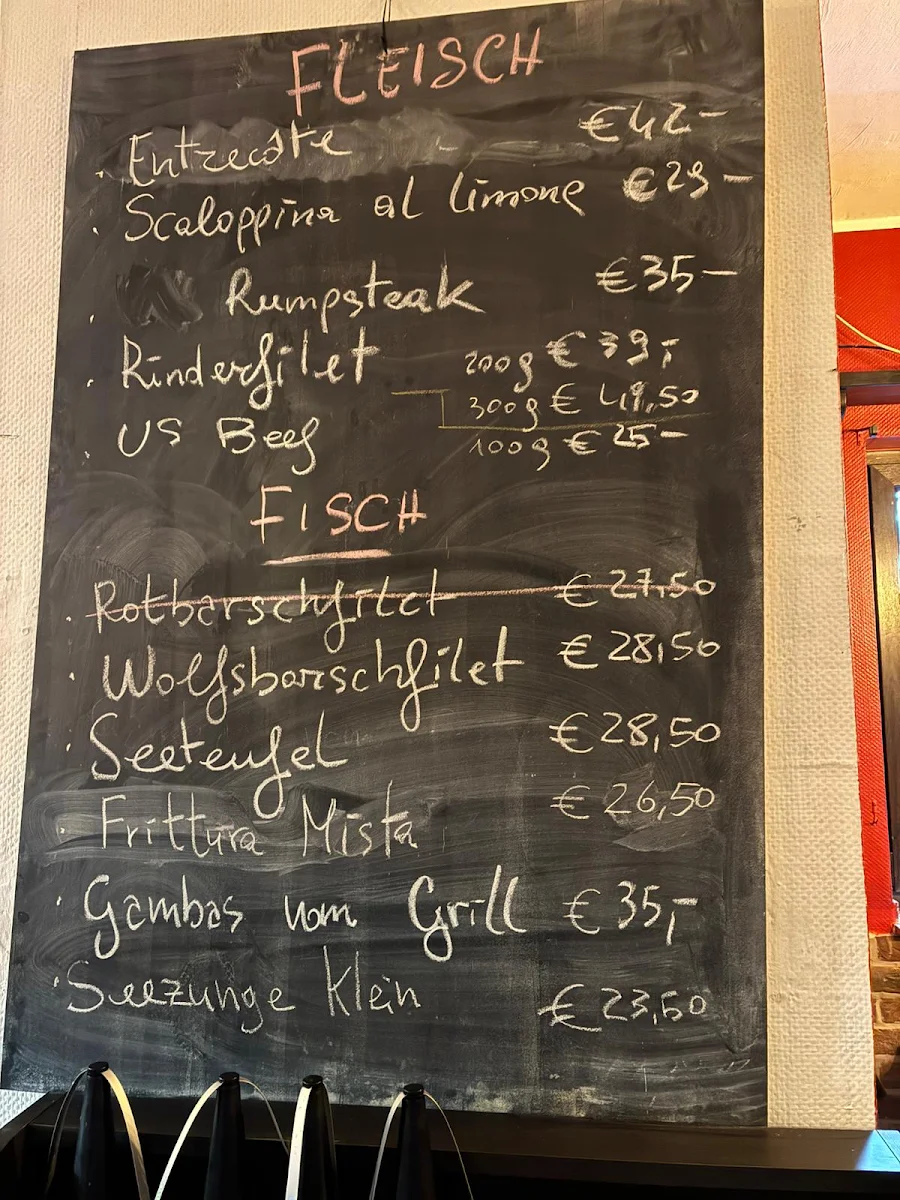 FLEISCH
· Entrecôte €42-
· Scaloppina al limone €29-
· Rumpsteak €35-
· Rinderfilet 200g €39,-
300g € 49,50
· US Beef 100g €25-
FISCH
· Rotbarschfilet €27,50
· Wolfsbarschfilet €28,50
· Seeteufel €28,50
· Frittura Mista €26,50
· Gambas vom Grill €35,-
· Seezunge Klein €23,50